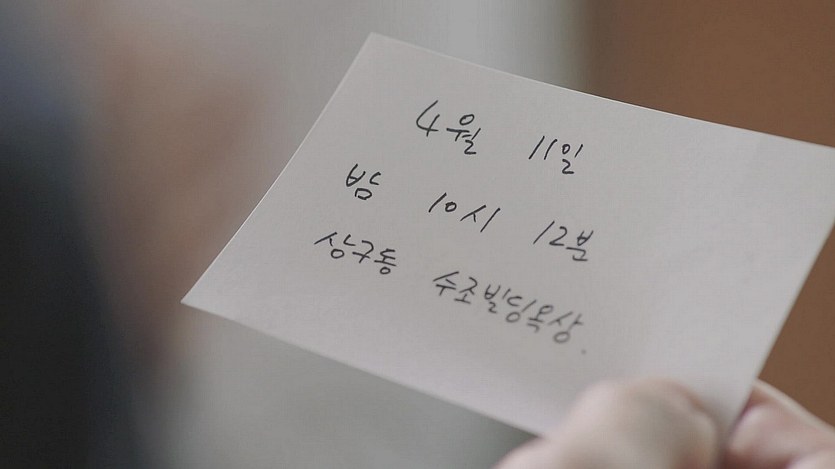 4월 11일
밤 10시 12분
상구동 수조빌딩옥상.